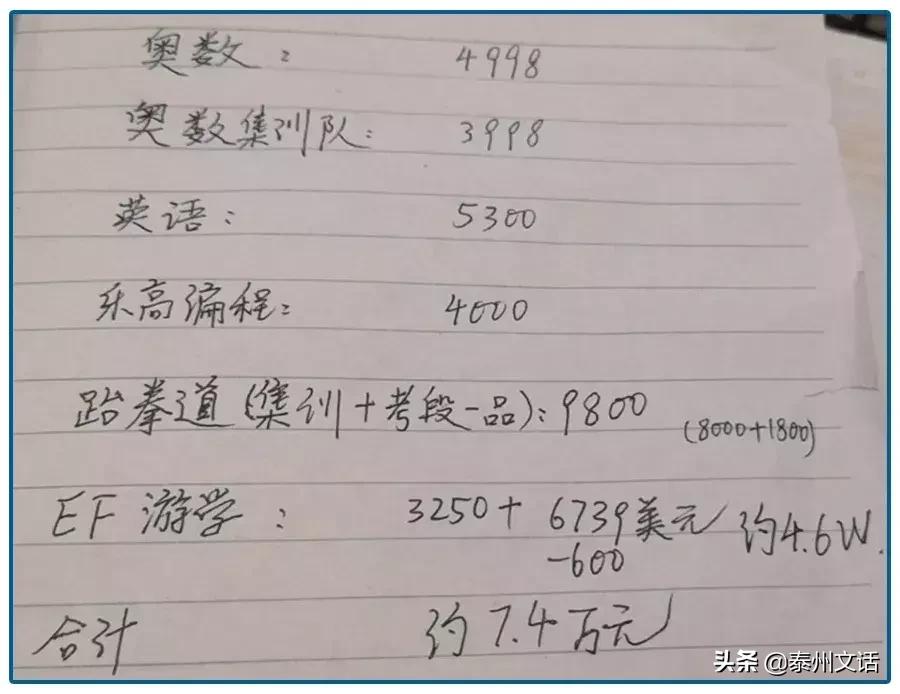 奥数： 4998
奥数集训队： 3998
英语： 5300
乐高编程： 4000
跆拳道(集训+考段一品)：9800 (8000+1800)
EF 游学： 3250+ 6739美元 约4.6W.
-600
合计 约7.4万元
头条 @泰州文话